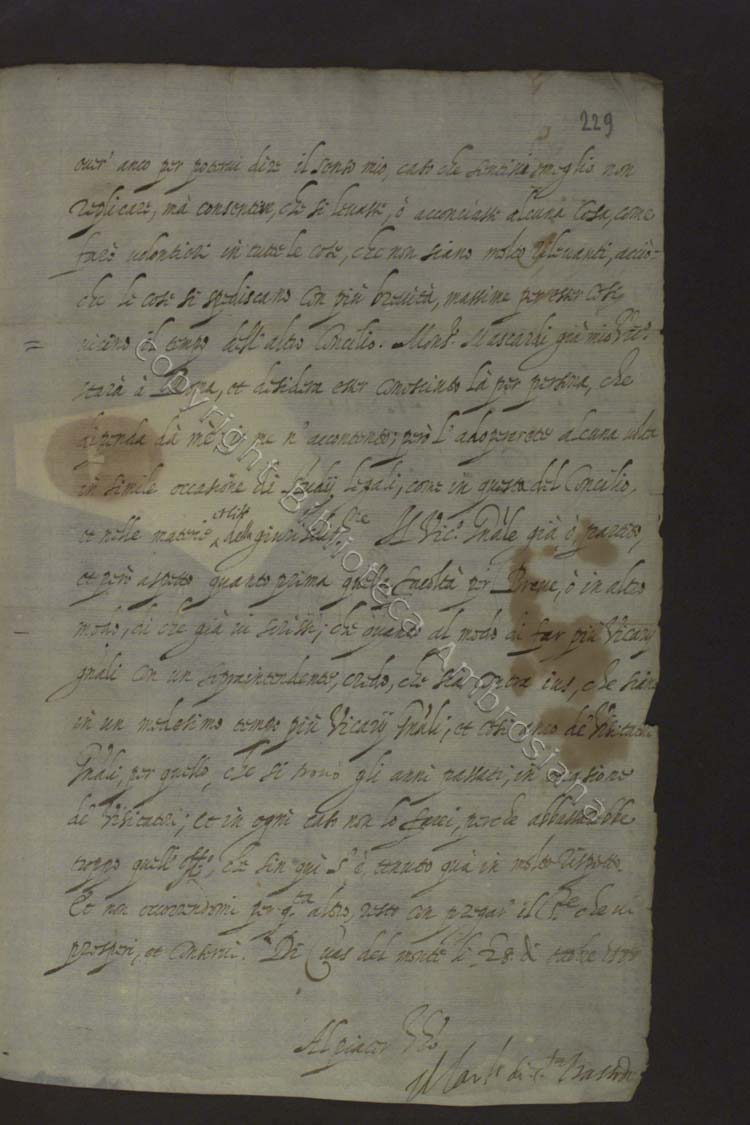 229
over' anco per potervi dire il senso mio, caso che sentissi meglio non
replicare, mà consentire, che si levasse, ò acconciasse alcuna cosa, come
farò volontieri in tutte le cose, che non siano molto rilevanti, acciò=
che le cose si spediscano con più brevità, massime per esser così
= vicino il tempo dell' altro Concilio. Mons.r Mascardi già mio Vic.o
starà à Roma, et desidera esser conosciuto là per persona, che
dipenda dà mè, et me n' accontento; però l' adoperarete alcuna volta
in simile occasione di studij legali, come in questa del Concilio,
et nelle materie della giurisd.ne Il Vic.o Gnäle già è partito,
et però aspetto quanto prima quella facoltà per Breve, ò in altro
modo, di che già vi scrissi; che quanto al modo di far più Vicarij
gnäli con un sopraintendente, credo, che sia contra ius, che siano
in un medesimo tempo più Vicarij Gnäli, et così anco de' Visitatori
Gnäli, per quello, che si trovò gli anni passati, in occasione
de' Visitatori; et in ogni caso non lo farei, perche abbassarebbe
troppo quell' off.o, che sin quì s' è tenuto già in molto rispetto.
Et non occorrendomi per q.sta altro, resto con pregar' il Sig.re che vi
prosperi, et conservi. Di del monte li 28. di ottobre
Al piacer V.ro
Il Car.le di S.ta Prassede
Copyright Biblioteca Ambrosiana